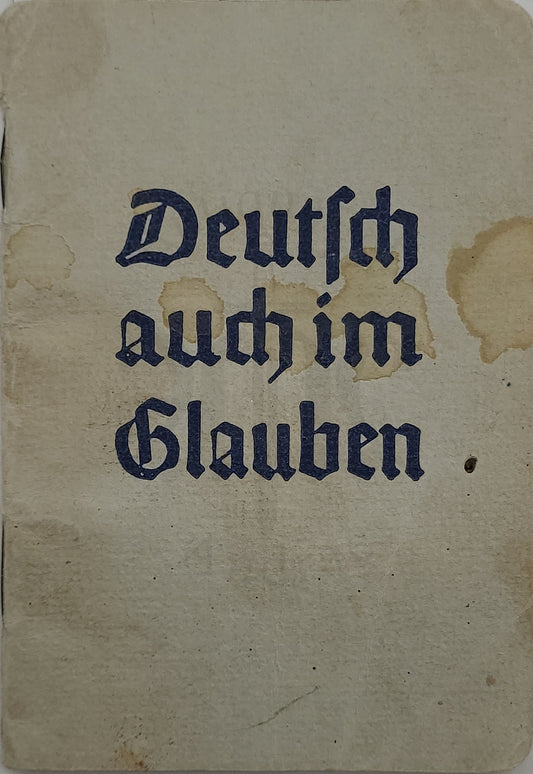 Deutſch
auch im
Glauben